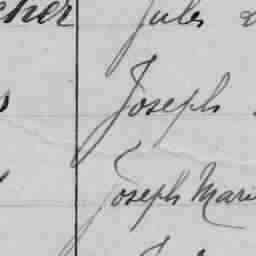 cher Jules
Joseph
Joseph Mari